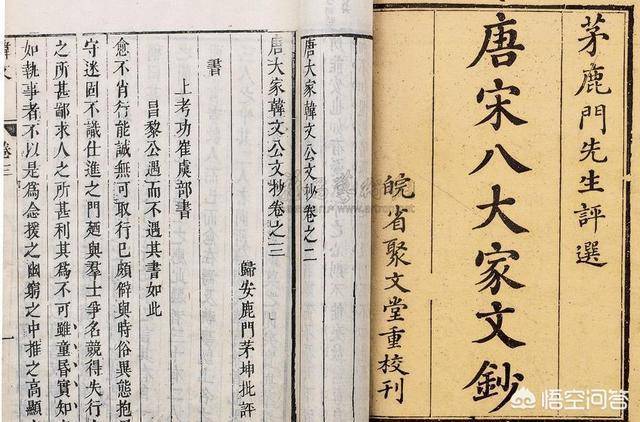 茅鹿門先生評選
唐宋八大家文鈔
皖省聚文堂重校刊
唐大家韓文公文抄卷之二
唐大家韓文公文抄卷之三
歸安鹿門茅坤批評
書
上考功崔虞部書
昌黎公遇而不遇其書如此
愈不肖行能誠無可取行已頗僻與時俗異態抱
守迷固不識仕進之門廼與羣士爭名競得失行
之所甚鄙求人之所甚利其為不可雖童昏實知
如執事者不以是為念援之幽窮之中推之高顯
韓文
卷三
一
悟空问答